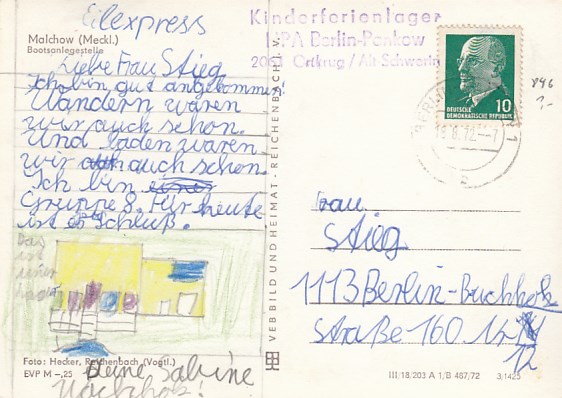 Eilexpress
Malchow (Meckl.)
Bootsanlegestelle
Liebe Frau Stieg
Ich bin gut angekommen!
Wandern waren
wir auch schon.
Und baden waren
wir auch schon.
Ich bin
Gruppe 8. Für heute
ist es Schluß.
Das
ist
unser
Foto: Hecker, Reichenbach (Vogtl.)
EVP M -,25
Deine Sabine
Nachholz!
VEB BILD UND HEIMAT · REICHENBACH i. V.
Kinderferienlager
Berlin-Pankow
Ortkrug / Alt Schwerin
DEUTSCHE
DEMOKRATISCHE REPUBLIK
10
846
Frau
Stieg
1113 Berlin-Buchholz
Straße 160
12
III/18/203 A 1/B 487/72
3/1425